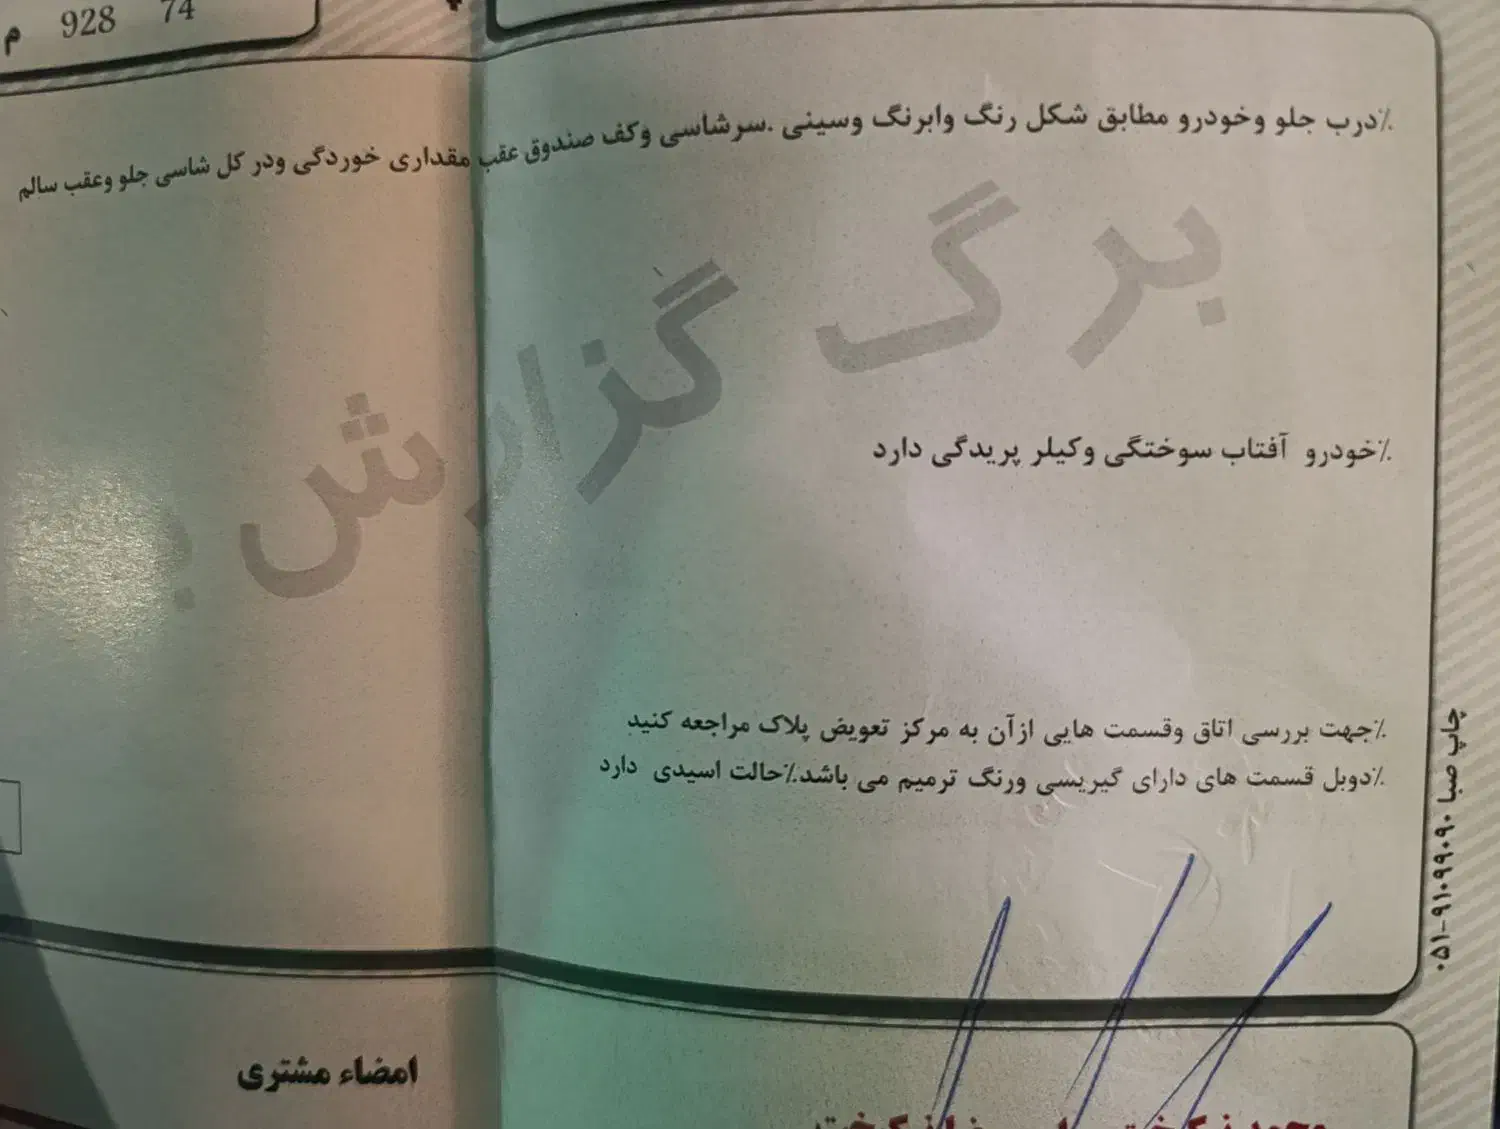 م 928 74
٪درب جلو وخودرو مطابق شکل رنگ وابرنگ وسینی .سرشاسی وکف صندوق عقب مقداری خوردگی ودر کل شاسی جلو وعقب سالم
برگ گزارش
٪خودرو آفتاب سوختگی وکیلر پریدگی دارد
٪جهت بررسی اتاق وقسمت هایی ازآن به مرکز تعویض پلاک مراجعه کنید
٪دوبل قسمت های دارای گیریسی ورنگ ترمیم می باشد.٪حالت اسیدی دارد
چاپ صبا ۰۵۱-۹۱۰۹۹۰۹۰
امضاء مشتری